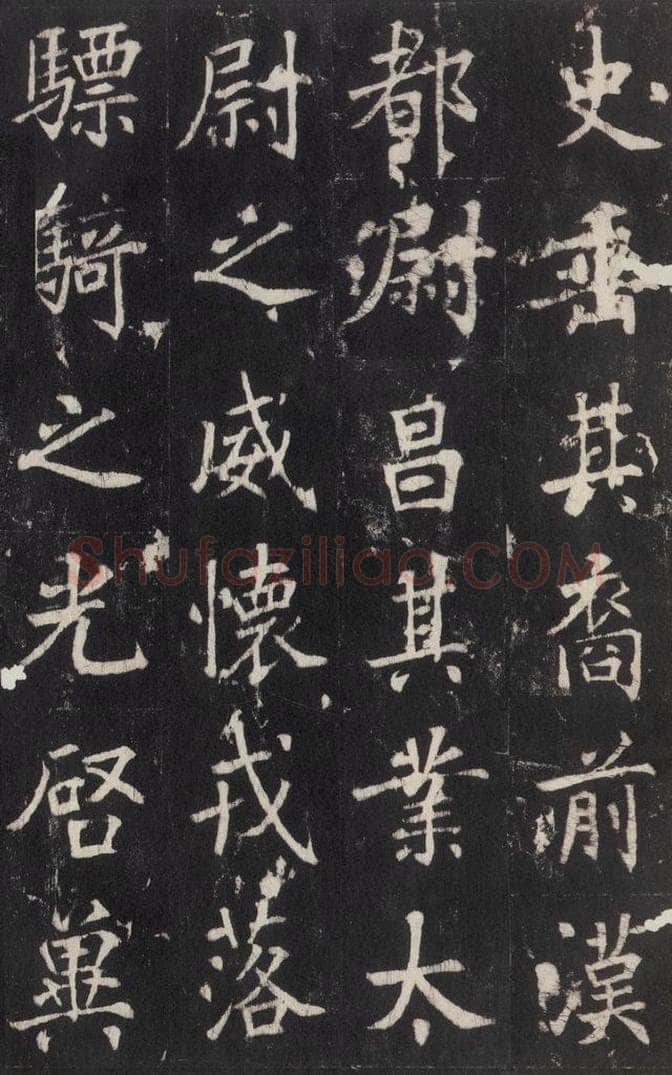 史垂其裔前漢
都尉昌其業太
尉之威懷戎落
驃騎之光啓冀
Shufaziliao.COM